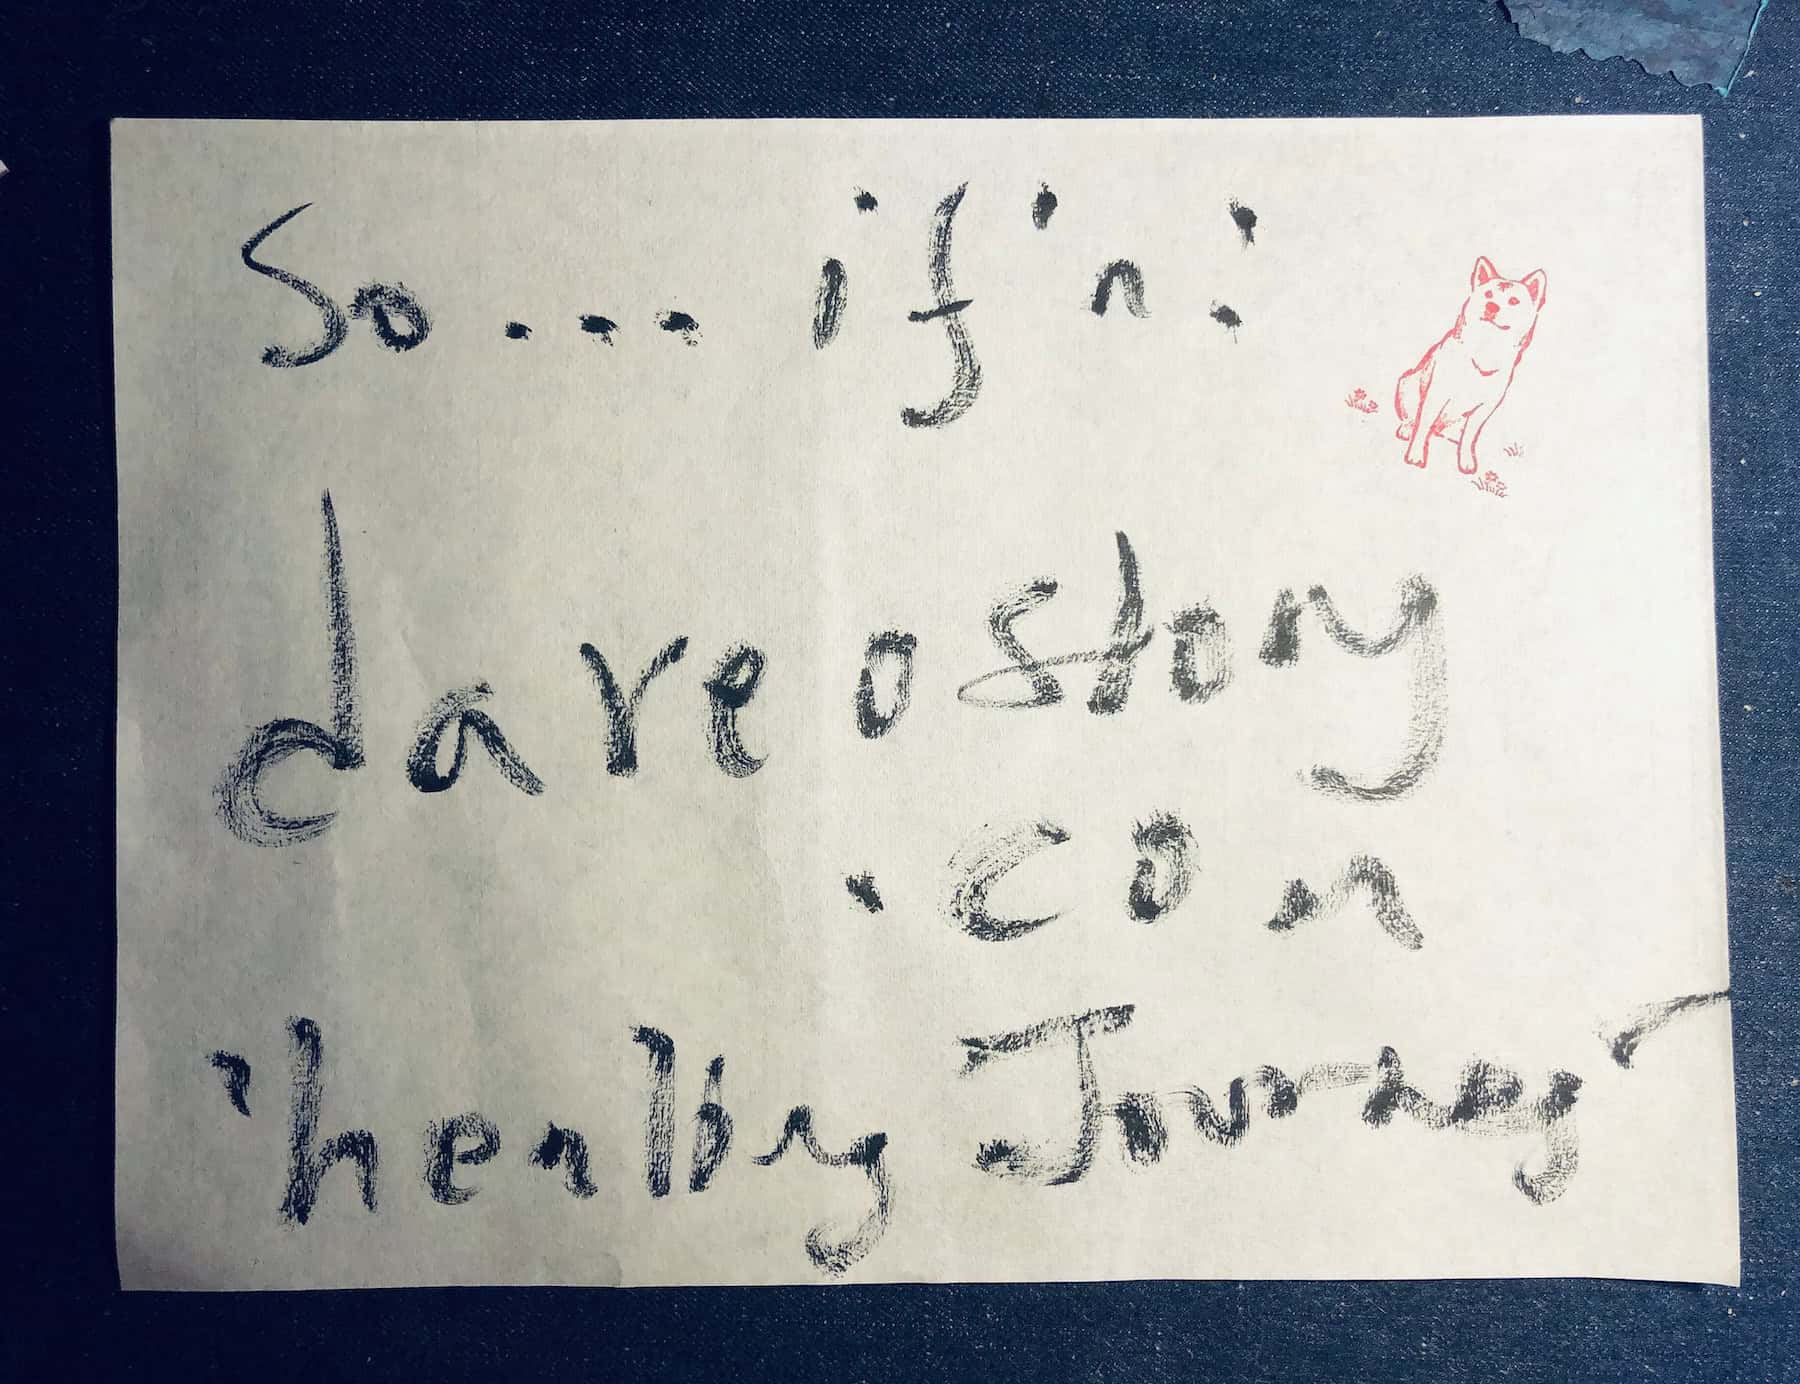 So... if 'n' :
dareostory
.com
'healing Journey'